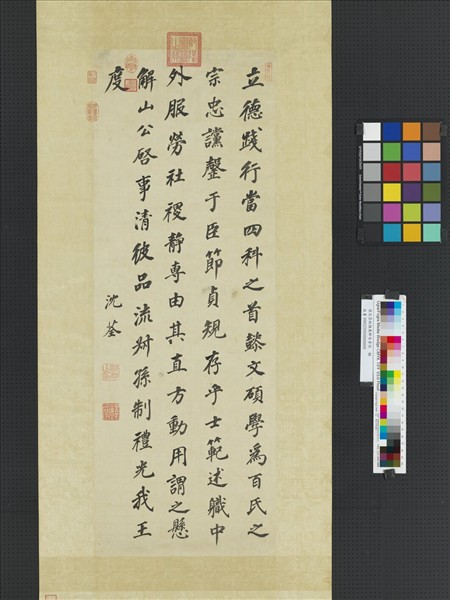 立德踐行當四科之首懿文碩學爲百氏之
宗忠讜罄于臣節貞規存乎士範述職中
外服勞社稷靜專由其直方動用謂之懸
解山公啓事清彼品流叔孫制禮光我王
度
沈荃